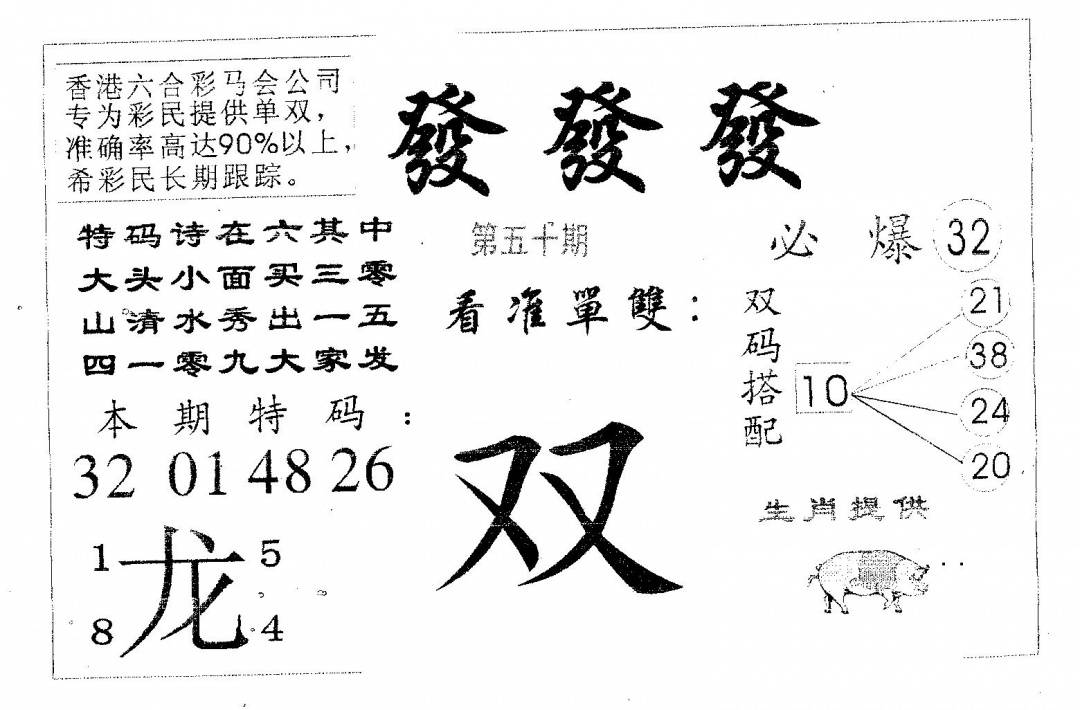 香港六合彩马会公司
专为彩民提供单双，
准确率高达90%以上，
希彩民长期跟踪。
發發發
特码诗在六其中
大头小面买三零
山清水秀出一五
四一零九大家发
第五十期
必爆32
看准單雙：
双码搭配
10
21
38
24
20
本期特码：
32 01 48 26
双
生肖提供
1 5
龙
8 4